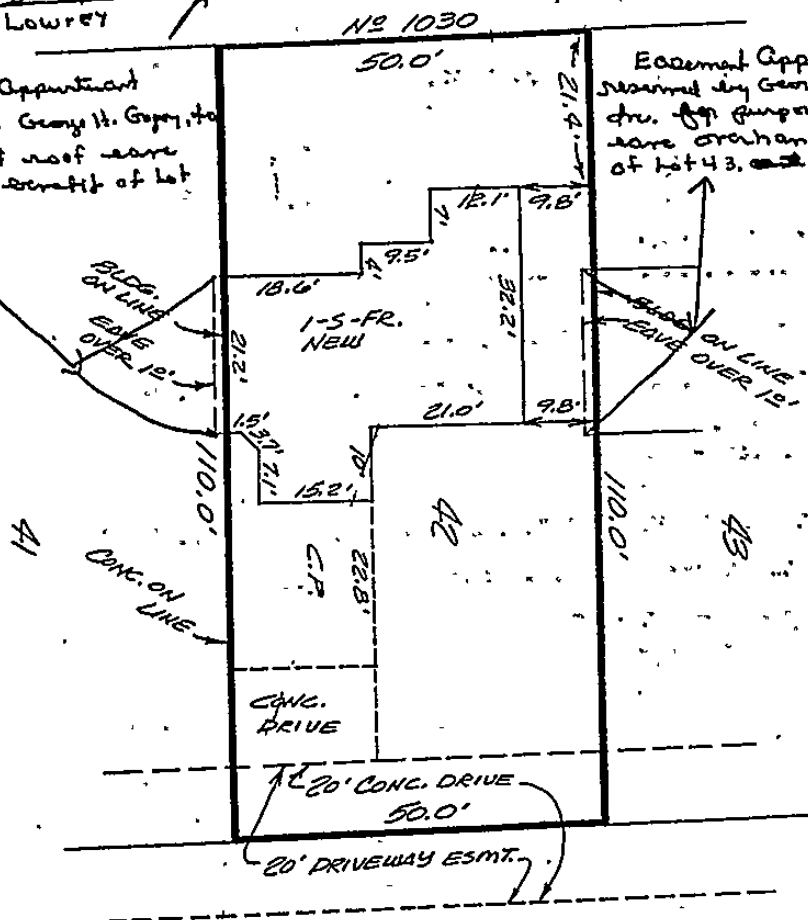 Lowrey
No 1030
50.0'
Appurtenant
George H.
roof eave
benefit of Lot
Easement App
reserved by Geor
Inc. for purpo
eave overhan
of Lot 43.
21.4'
12.1'
9.8'
7'
9.5'
4'
18.6'
BLDG.
ON LINE
EAVE
OVER 1.0'
21.2'
1-S-FR.
NEW
32.2'
BLDG ON LINE
EAVE OVER 1.0'
21.0'
9.8'
1.5'
3.7'
7.1'
10'
15.2'
110.0'
110.0'
41
42
43
CONC. ON
LINE
C.P.
22.8'
CONC.
DRIVE
20' CONC. DRIVE
50.0'
20' DRIVEWAY ESMT.